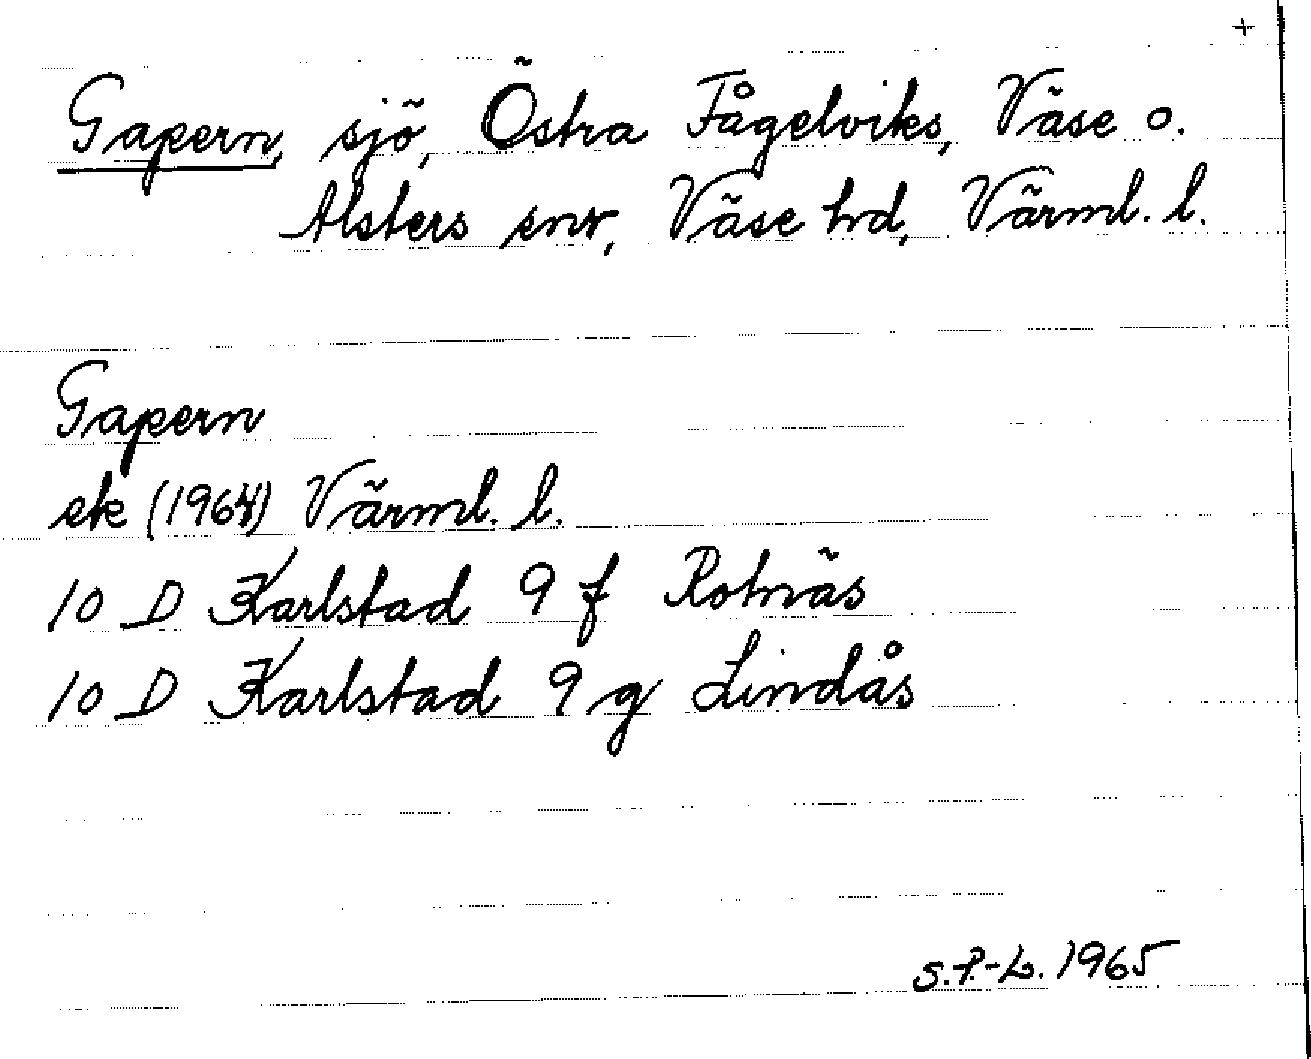 +
Gapern, sjö, Östra Fågelviks, Väse o.
Alsters snr, Väse hd, Värml. l.
Gapern
ek (1964) Värml. l.
10 D Karlstad 9 f Rotnäs
10 D Karlstad 9 g Lindås
S.P.-L. 1965